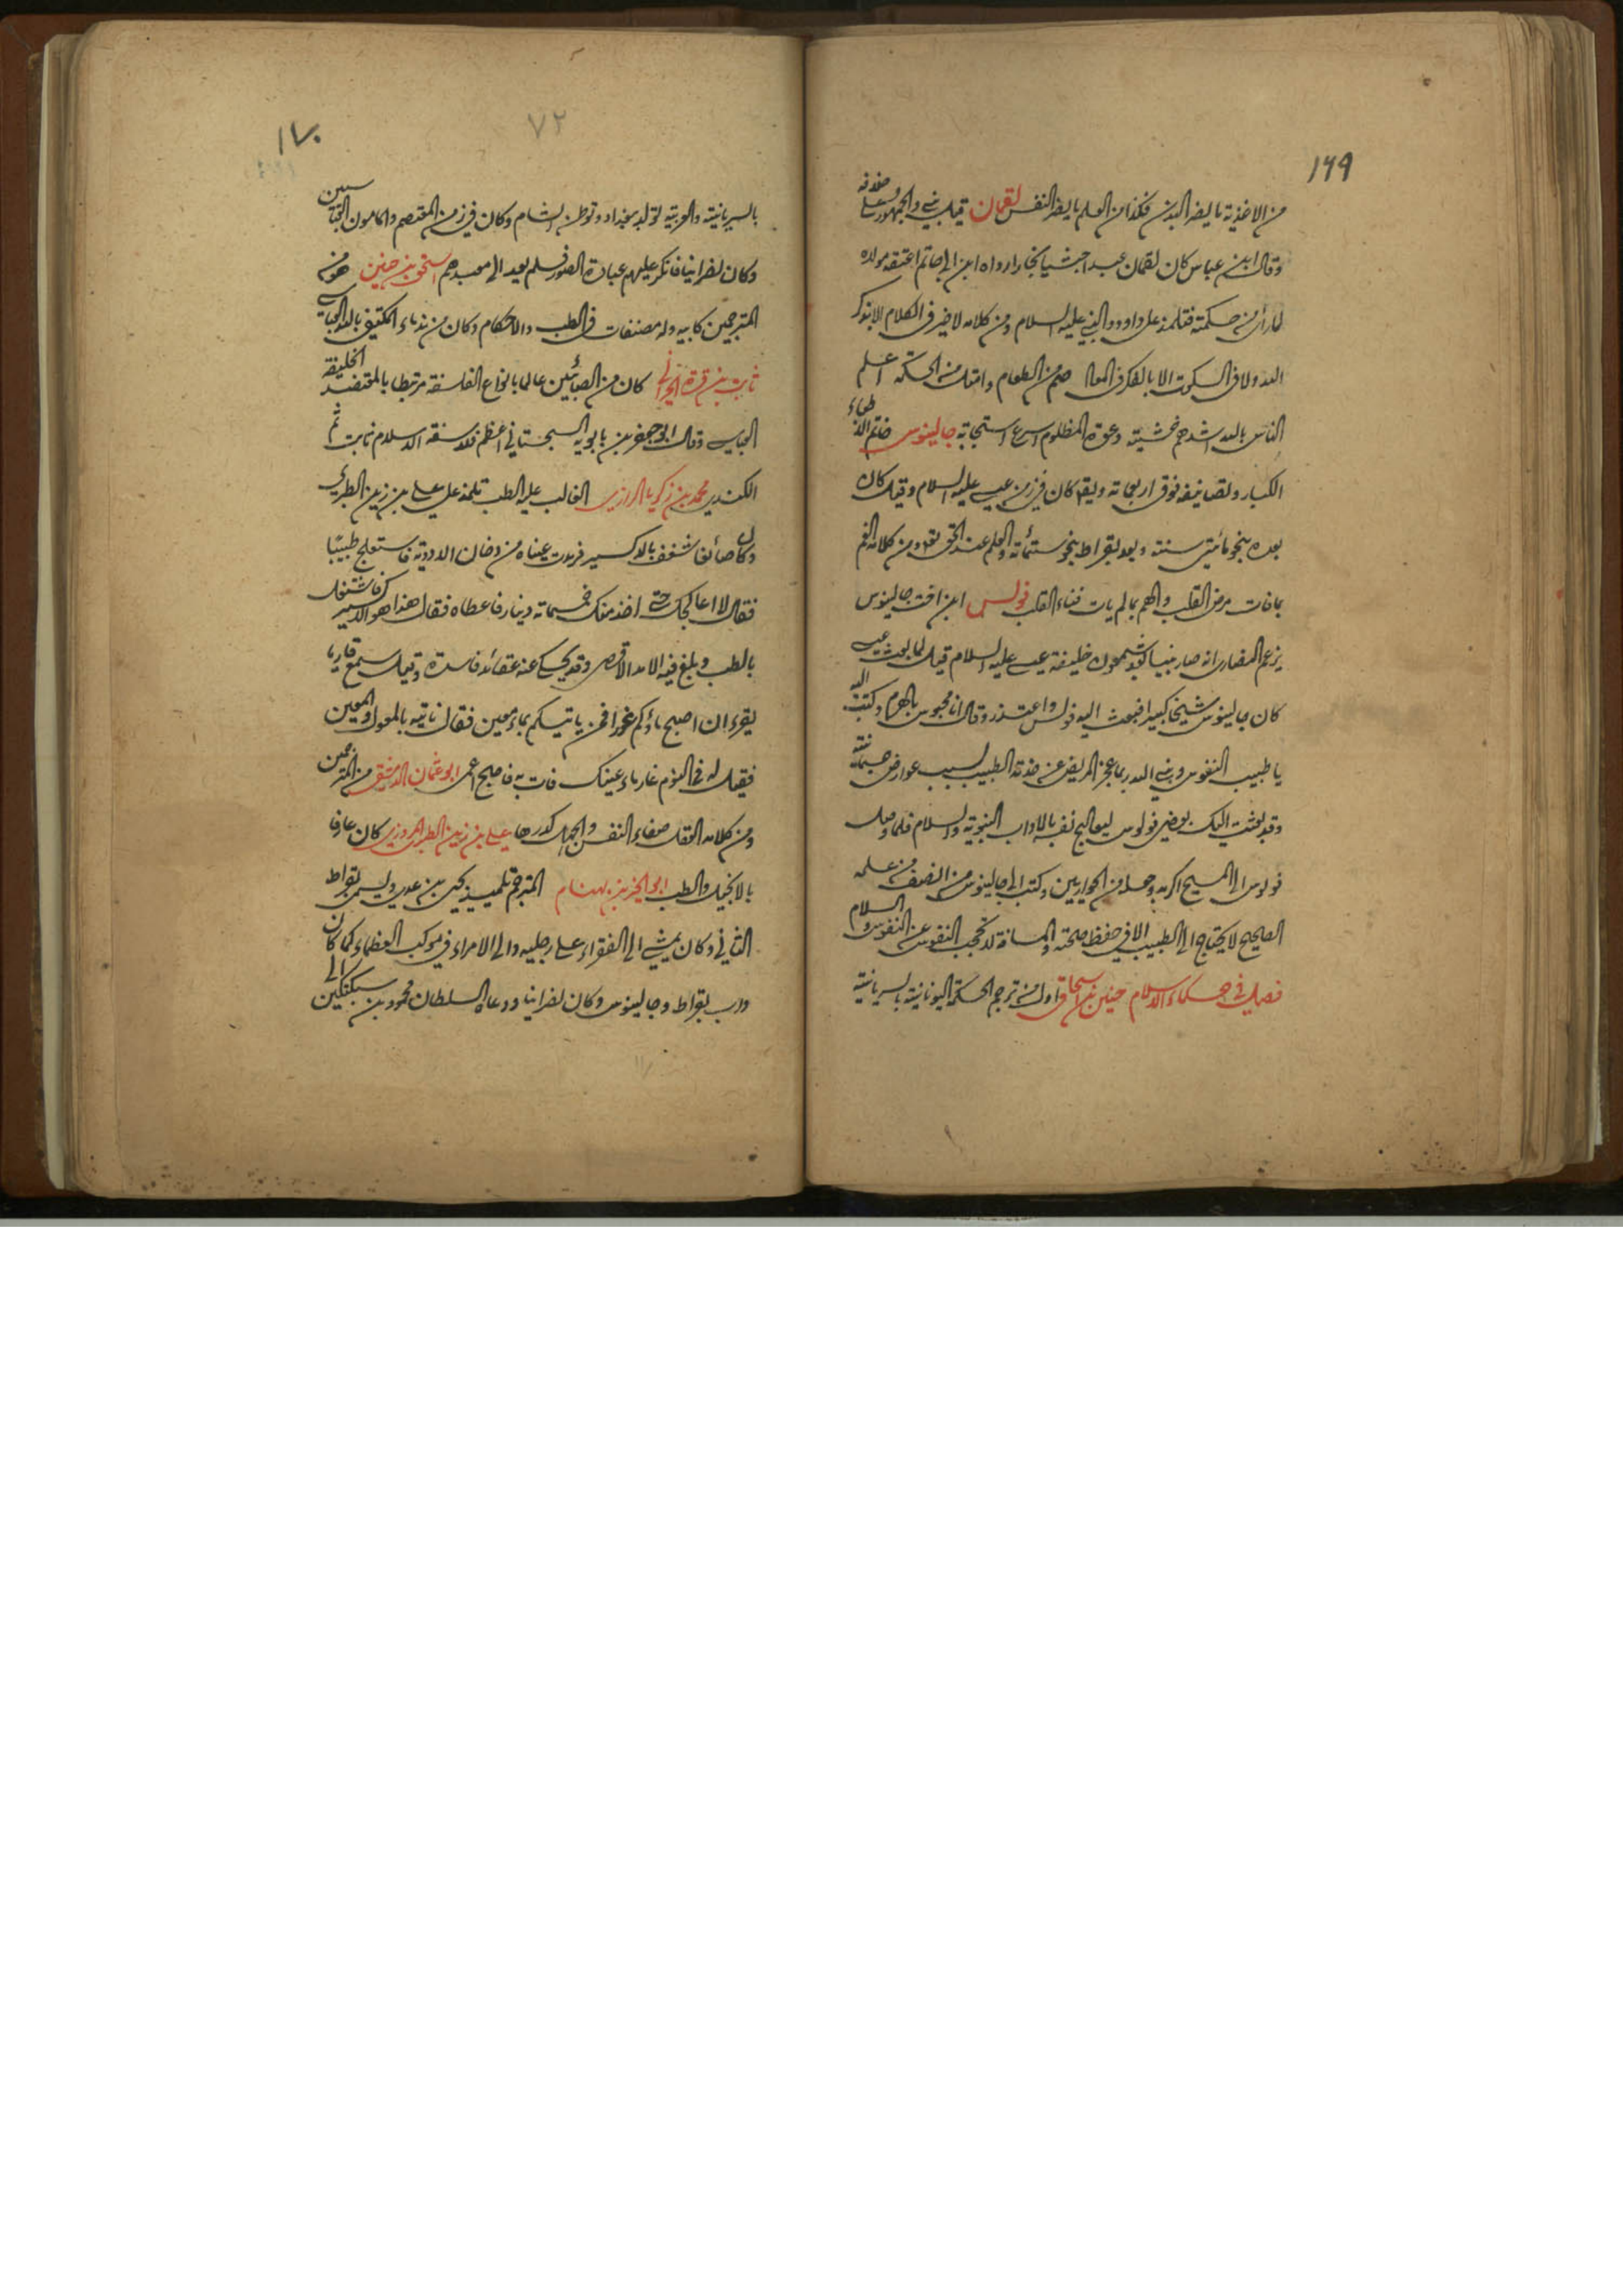 ١٦٩
من الاغذية ما يضر البدن فكذا من العلم ما يضر النفس لقمان قيل نبي والجمهور على خلافه
وقال ابن عباس كان لقمان عبدا حبشيا نجارا رواه ابن ابي حاتم اعتقه مولاه
لما رأى من حكمته فتلمذ على داوود النبي عليه السلام ومن كلامه لا خير في الكلام الا بذكر
الله ولا في السكوت الا بالفكر في المعاد صم من الطعام وامتل من الحكمة اعلم
الناس بالله اشدهم خشيته دعوة المظلوم اسرع استجابة جالينوس خاتم الاطباء
الكبار وتصانيفه فوق اربعمائة ويقال كان في زمن عيسى عليه السلام وقيل كان
بعده بنحو مائتي سنة وبعد بقراط بنحو ستمائة والعلم عند الحق تعالى ومن كلامه الغم
بما فات مرض القلب والهم بما لم يات فناء القلب فولس ابن اخت جالينوس
يزعم النصارى انه صار نبيا بعد شمعون خليفة عيسى عليه السلام قيل لما بعث عيسى
كان جالينوس شيخا كبيرا فبعث اليه فولس واعتذر وقال انا محبوس بالهرم وكتب اليه
يا طبيب النفوس ونبي الله ربما عجز المريض عن خدمة الطبيب بسبب عوارض جسمانية
وقد بعثت اليك بعضي فولوس ليعالج نفسه بالاداب النبوية والسلام فلما وصل
فولوس الى المسيح اكرمه وجعله من الحواريين وكتب الى جالينوس من انصف من علمه
الصحيح لا يحتاج الى الطبيب الا في حفظ صحته والمسافة لا تحجب النفوس عن النفوس والسلام
فصل في حكماء الاسلام حنين بن اسحاق اول من ترجم الحكمة اليونانية بالسريانية
٧٢
١٧٠
بالسريانية والعربية تولد ببغداد وتوطن الشام وكان في زمن المعتصم والمامون العباسيين
وكان نصرانيا فانكر عليهم عبادة الصور فلم يعد الى معبدهم اسحق بن حنين هو من
المترجمين كابيه وله مصنفات في الطب والاحكام وكان من ندماء المكتفي بالله العباسي
ثابت بن قرة الحراني كان من الصابئين عالما بانواع الفلسفة مرتبطا بالمعتضد الخليفة
العباسي وقال ابو جعفر بن بابويه السجستاني اعظم فلاسفة الاسلام ثابت ثم
الكندي محمد بن زكريا الرازي الغالب عليه الطب تلمذ على علي بن زين الطبري
وكان صائغا شغف بالاكسير فرمدت عيناه من دخان الادوية فاستعلج طبيبا
فقال لا اعالجك حتى اخذ منك خمسمائة دينار فاعطاه فقال هذا هو الاكسير فاشتغل
بالطب وبلغ فيه الامد الاقصى وقد يحكى عنه عقائد فاسدة وقيل سمع قاريا
يقرء ان اصبح ماؤكم غورا فمن ياتيكم بماء معين فقال ناتيه بالمعول والمعين
فقيل له في النوم غار ماء عينك فات به فاصبح اعمى ابو عثمان الدمشقي من المترجمين
ومن كلامه العقل صفاء النفس والجهل كدرها علي بن زين الطبري المروزي كان عارفا
بالانجيل والطب ابو الخير بن بهنام المترجم تلميذ يحيى بن عدي ويسمى بقراط
الثاني وكان يمشي الى الفقراء على رجليه والى الامراء في موكب العظماء كما كان
داب بقراط وجالينوس وكان نصرانيا ودعاه السلطان محمود بن سبكتكين الى